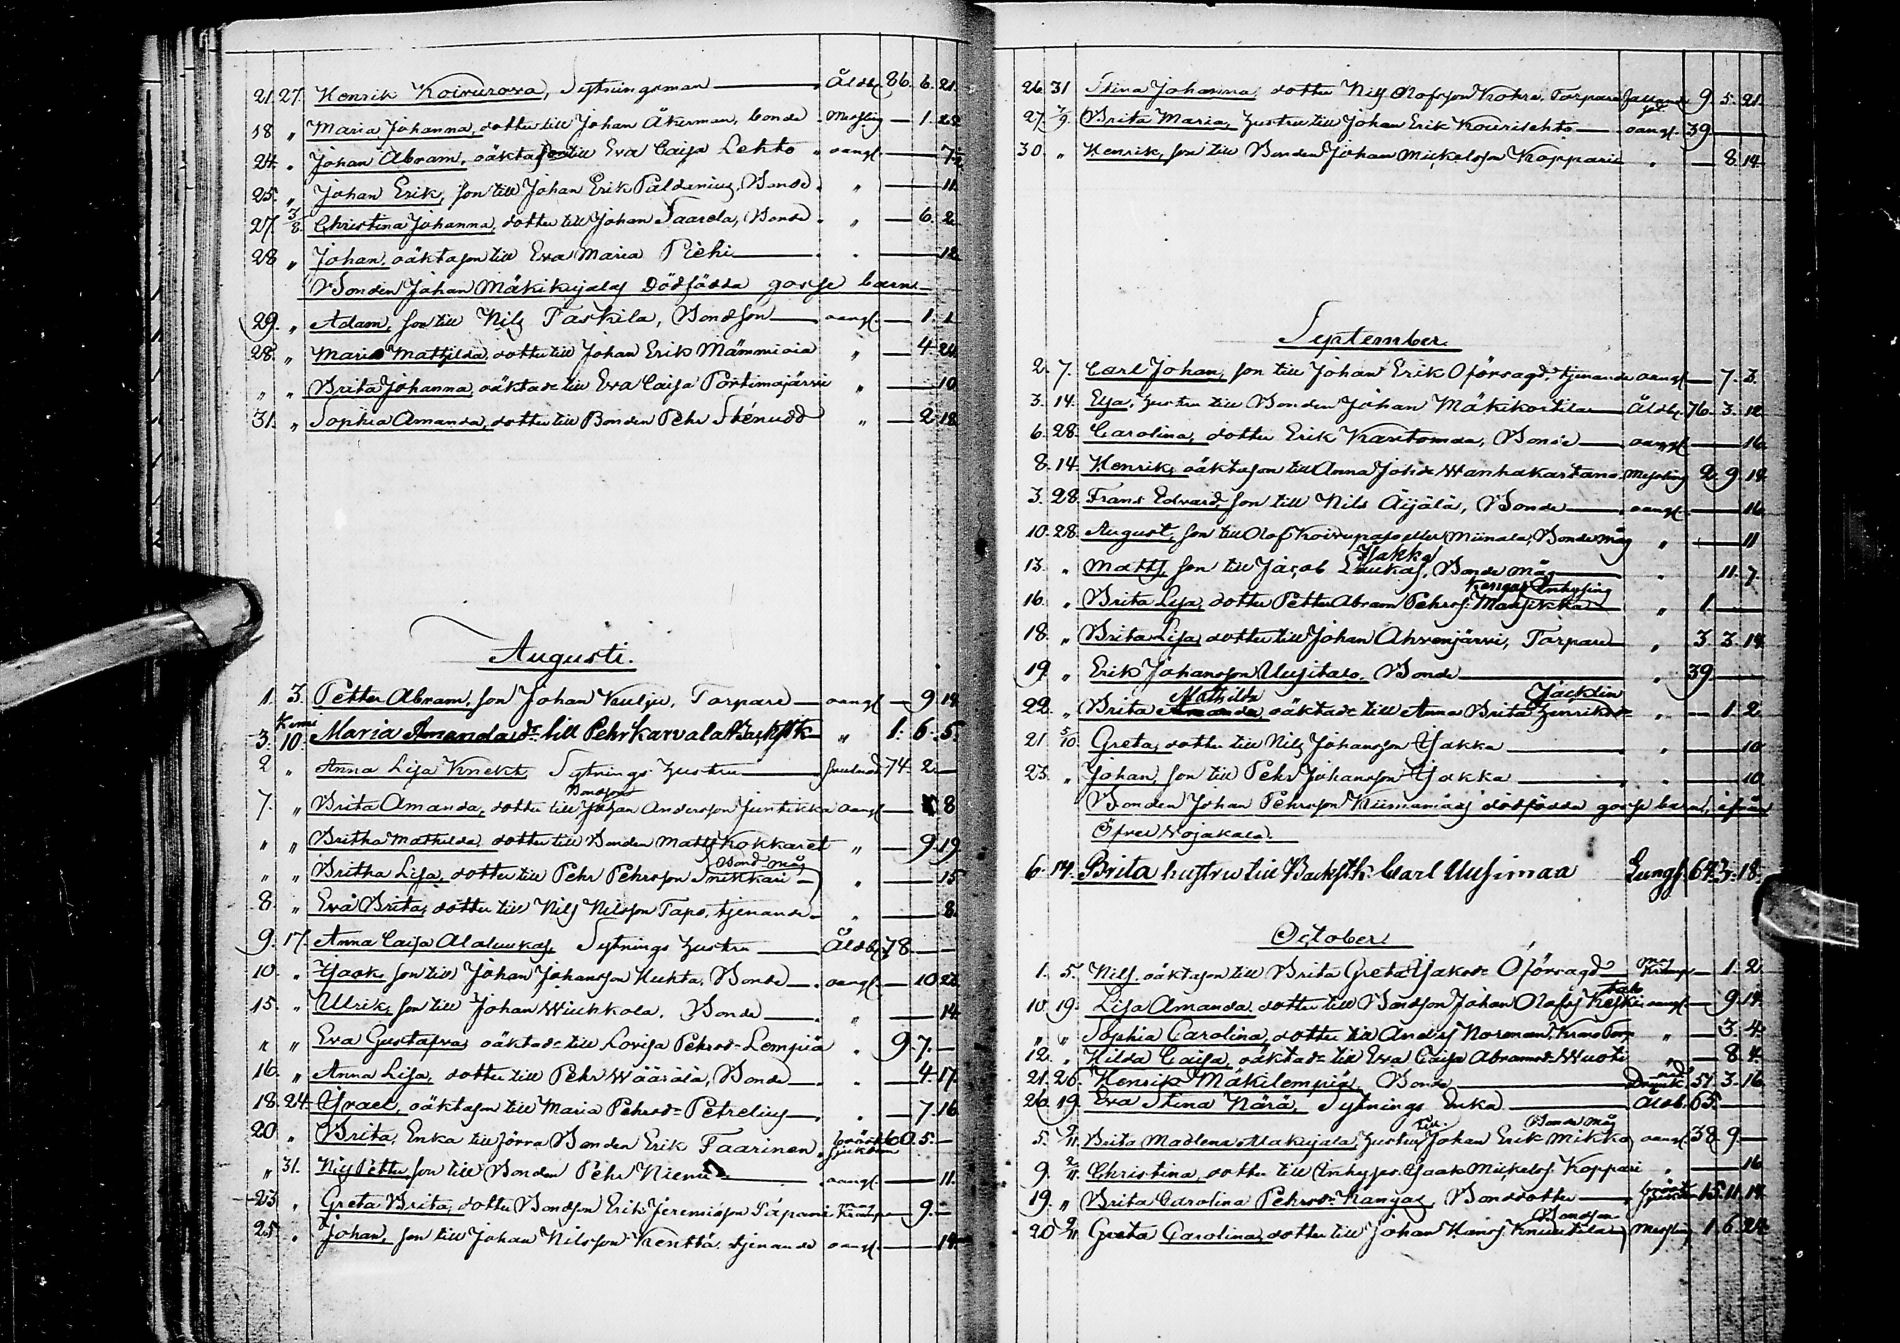 21. 27. Henrik Koivurova, Sytningsman Åldb. 86. 6. 21.
18 " Maria Johanna, dotter till Johan Åkerman, bonde Messling — 1. 22
24. " Johan Abram, oäkta son till Eva Caisa Lehto " oangf.
25. " Johan Erik, son till Johan Erik Paldanius, Bonde " — 11.
27. 3/8. Christina Johanna, dotter till Johan Taarela, Bonde " — 6. 2
28 " Johan, oäkta son till Eva Maria Piehi — 12
Bonden Johan Mäkikyjalas Dödfödda gosse barn
29. " Adam, son till Nils Taskila, Bondson oangf. — 1. 1
28. " Maria Mathilda, dotter till Johan Erik " — 4. 24
" " Brita Johanna, oäkta dr till Eva Caisa Portimojärvi " — 10
31. " Sophia Amanda, dotter till Bonden Pehr Stenudd " — 2. 18
Augusti.
1. 3. Petter Abram, son Johan Kulju, Torpare oangf. — 9. 14
3. Kemi 10. Maria Amanda, dr till Pehr Karvala Backstk " 1. 6. 5.
2 " Anna Lisa Knekt, Sytnings Hustru 74. 2. —
7. " Brita Amanda, dotter till Bondson Johan Andersson Juntikka oangf — 8
" " Britha Mathilda, dotter till Bonden Matts Kokkaret " — 9. 19
" " Britha Lisa, dotter till Pehr Pehrsson Nikkari Bond måg " — 15
8. " Eva Brita, dotter till Nils Nilsson Tapo, tjenande " — 8.
9. 17. Anna Caisa Alaluukas, Sytnings Hustru Åldb. 78 —
10. " Isaak, son till Johan Johansson Huhta, Bonde oangf. — 10 23
15. " Ulrik, son till Johan Wiehkola, Bonde " — 14
" " Eva Gustafva, oäkta dr till Lovisa Pehrsdr Lempiä " 9. 7. —
16. " Anna Lisa, dotter till Pehr Määrälä, Bonde — 4. 17.
18. 24. Israel, oäkta son till Maria Pehrsdr Petrelius — 7. 16
20. " Brita, Enka till förra Bonden Erik Taarinen bröst sjukdom 60. 5. —
" 31. Nils Petter, son till Bonden Pehr Niemi oangf. — 11.
23. " Greta Brita, dotter Bondson Erik Jeremiasson — 9. —
25. " Johan, son till Johan Nilsson Kenttä, tjenande oangf. — 14.
26. 31 Stina Johanna, dotter Nils Olofsson Kohra, Torpare 9. 5. 21.
27. 7/9. Brita Maria, Hustru till Johan Erik Kourilehto oangf. 39 —
30. " Henrik, son till Bonden Johan Mickelsson Koppari " — 8. 14.
September.
2. 7. Carl Johan, son till Johan Erik Oförsagd, tjenande oangf. — 7. 3.
3. 14. Elsa, Hustru till Bonden Johan Mäkikostila Åldb. 76. 3. 12
6. 28. Carolina, dotter Erik Kantomaa, Bonde oangf. — 16
8. 14. Henrik, oäkta son till Anna Johsdr Wanhakartano Messling 2. 9. 14
3. 28. Frans Edvard, son till Nils Äijälä, Bonde oangf. — 16
10. 28. August, son till Olof Koivupaso eller Miinala, Bonde måg " — 11
13. " Matts, son till Jacob Laukas, Isakka Bonde måg — 11. 7.
16. " Brita Lisa, dotter Petter Abram Pehrs. Mansikka Kengäs Inhysing " 1. —
18. " Brita Lisa, dotter till Johan Ahvenjärvi, Torpare " 3. 3. 14
19. " Erik Johansson Uusitalo, Bonde " 39 —
22. " Brita Mathilda oäkta dr till Anna Brita Henriksdr Jacklin " — 1. 2
21. 5/10. Greta, dotter till Nils Johansson Isakka — 10
23. " Johan, son till Pehr Johansson Isakka — 10
Bonden Johan Pehrsson Kiimamaas dödfödda gosse barn, ifrån
Öfver Wojakala.
6. 14. Brita hustru till Backstk. Carl Uusimaa Lungs. 67. 3. 18.
October
1. 5. Nils, oäkta son till Brita Greta Isaksdr Oförsagd — 1. 2
10. 19. Lisa Amanda, dotter till Bondson Johan Olofss Keskitalo oangf. — 9. 14.
" " Sophia Carolina, dotter till Anders Noreman, Krono Torp. " — 3. 4
12. " Hilda Caisa, oäkta dr till Eva Caisa Abramsdr Wuoti — 8. 4.
21. 26. Henrik Mäkilempiä, Bonde 54. 3. 16
20. 19. Eva Stina Närä, Sytnings Enka Åldb. 65. —
5. 2/11 Brita Madlena Alakujala, Hustru till Johan Erik Mikko Bonde måg oangf. 38. 9. —
9. 2/11 Christina, dotter till Inhyses Isaak Mickelss. Koppari " — 16
19. " Brita Carolina Pehrsdr Kangas, Bondedotter bröst 15. 11. 14.
20 2/11 Greta Carolina, dotter till Johan Hanss. Knuutila Bondson Messling 1. 6. 24.